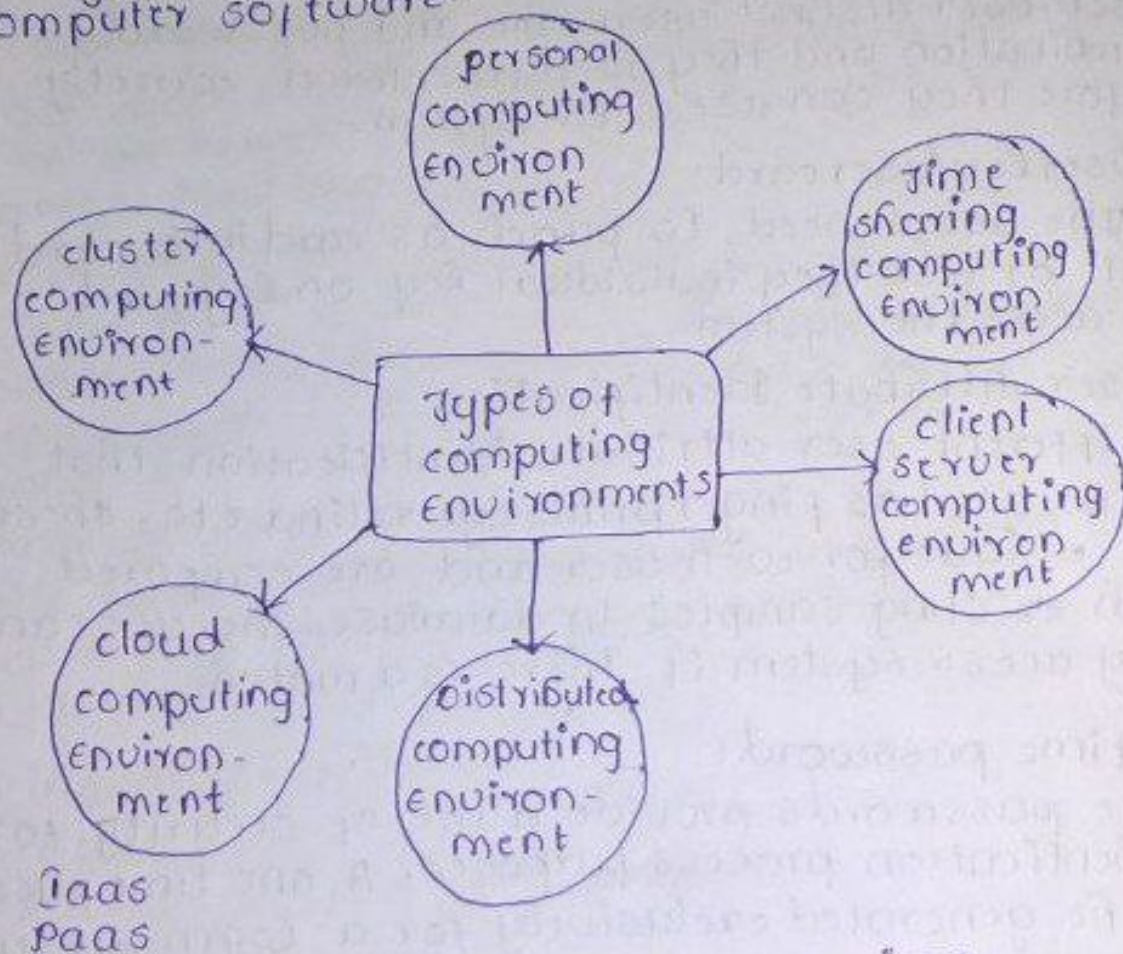 computer software
personal
computing
Environ
ment
Time
sharing
computing
environ
ment
cluster
computing
Environ-
ment
Types of
computing
Environments
client
server
computing
environ-
ment
cloud
computing
Environ-
ment
Distributed
computing
environ-
ment
Iaas
Paas